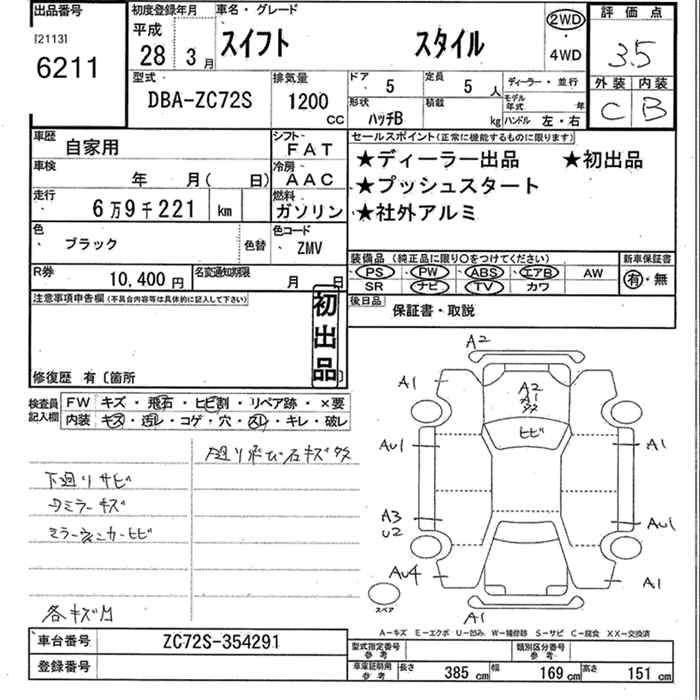 出品番号
[2113]
6211
初度登録年月
平成
28 3月
車名・グレード
スイフト スタイル
2WD
・
4WD
評価点
3.5
外装 内装
C B
型式
DBA-ZC72S
排気量
1200
CC
ドア
5
定員
5人
ディーラー・並行
形状
ハッチB
積載
kg
モデル年式 年
ハンドル 左・右
車歴
自家用
シフト
FAT
セールスポイント(正常に機能するものに限ります)
★ディーラー出品 ★初出品
★プッシュスタート
★社外アルミ
車検
年 月( 日)
冷房
AAC
走行
6万9千221 km
燃料
ガソリン
色
ブラック
色替
色コード
ZMV
装備品(純正品に限り〇をつけてください)
新車保証書
PS PW ABS エアB AW
SR ナビ TV カワ
有・無
R券
10,400円
名変通知期限
月 日
後日品
保証書・取説
注意事項申告欄(不具合内容等は具体的に記入して下さい)
初出品
修復歴 有〔箇所 〕
検査員記入欄
FW キズ・飛石・ヒビ割・リペア跡・×要
内装 キズ・汚レ・コゲ・穴・スレ・キレ・破レ
下廻りサビ
ミラーウィンカーヒビ
A2
A1
A2
A1
ヒビ
AU1
A1
A3
U2
AU1
AU4
A1
A1
スペア
A-キズ E-エクボ U-凹み W-補修跡 S-サビ C-腐食 XX-交換済
車台番号
ZC72S-354291
登録番号
型式指定番号
参考
類別区分番号
参考
車庫証明用
参考
長さ 385cm 幅 169cm 高さ 151cm